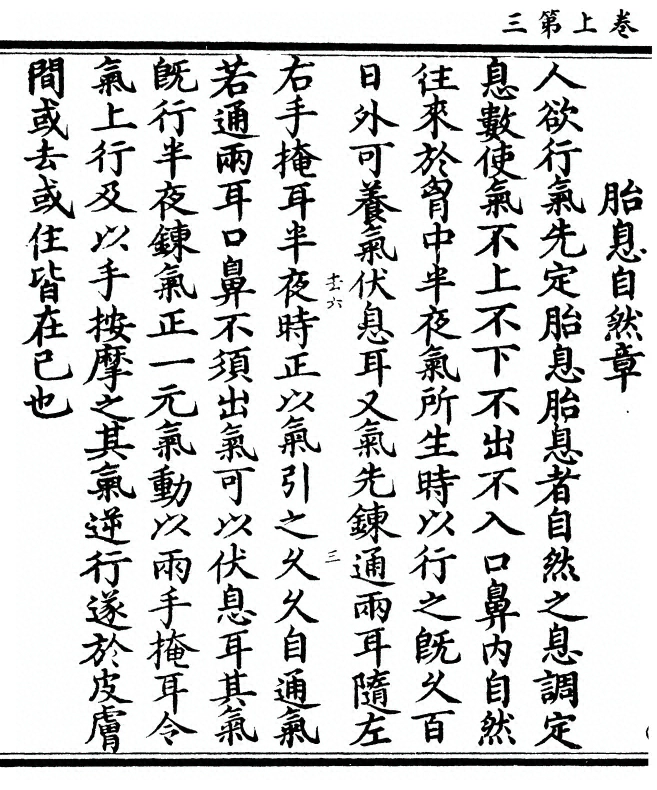 三第上卷
胎息自然章
人欲行氣先定胎息胎息者自然之息調定
息數使氣不上不下不出不入口鼻內自然
往來於胷中半夜氣所生時以行之旣久百
日外可養氣伏息耳又氣先鍊通兩耳隨左
六
三
右手掩耳半夜時正以氣引之久久自通氣
若通兩耳口鼻不須出氣可以伏息耳其氣
旣行半夜鍊氣正一元氣動以兩手掩耳令
氣上行及以手按摩之其氣逆行遂於皮膚
間或去或住皆在己也